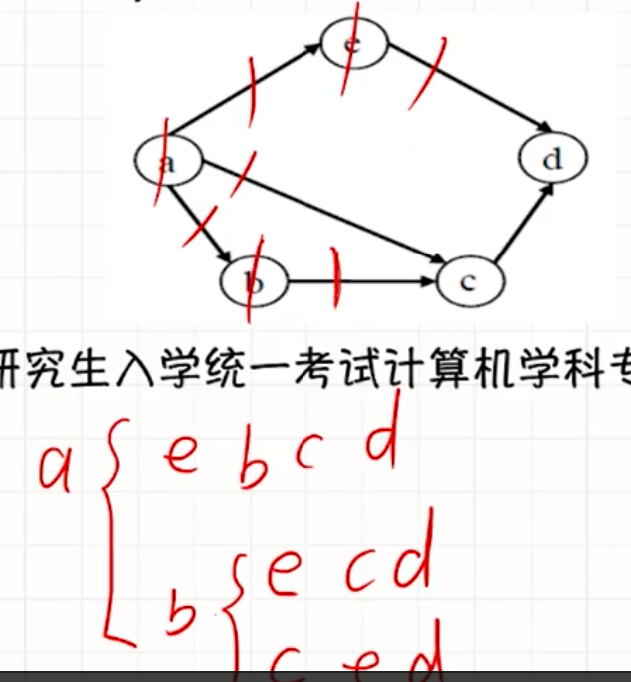 e
a
d
b
c
研究生入学统一考试计算机学科专
a { e b c d
b { e c d
c e d